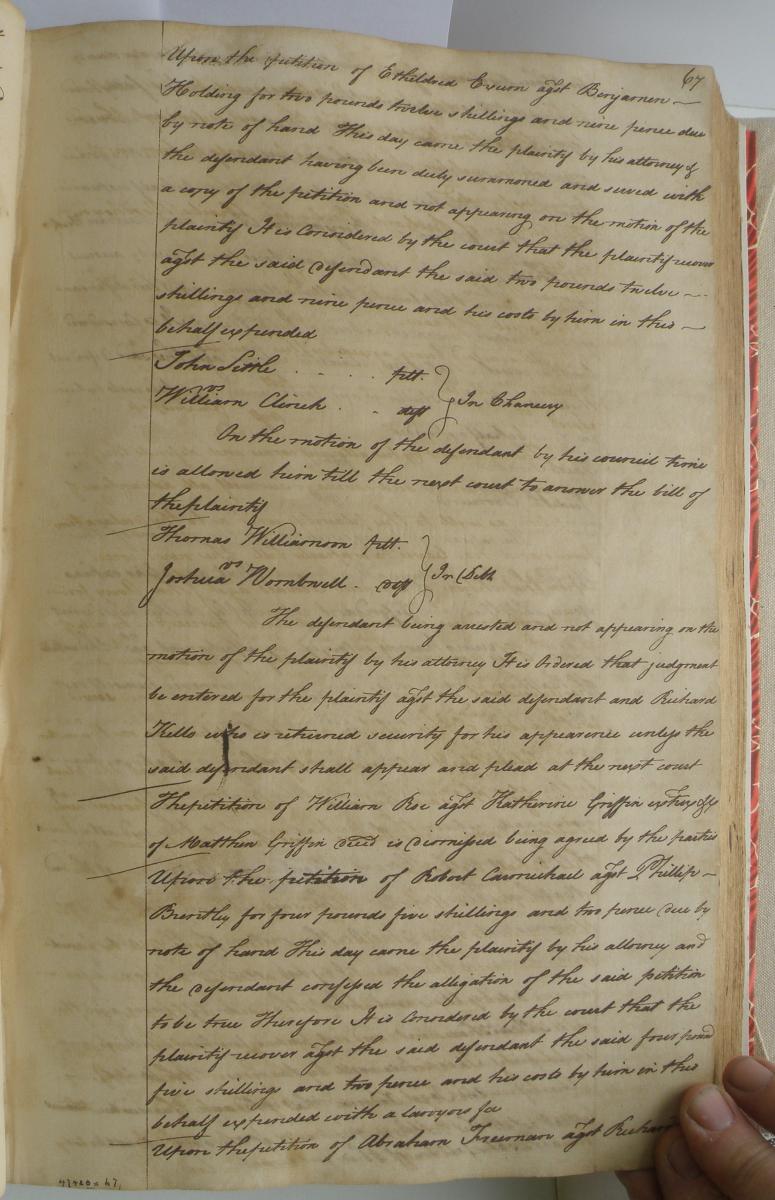 67
Upon the petition of Etheldred Exum agst Benjamen
Holding for two pounds twelve shillings and nine pence due
by note of hand This day came the plaintif by his attorney &
the defendant having been duly summoned and served with
a copy of the petition and not appearing on the motion of the
plaintif It is Considered by the court that the plaintif recover
agst the said defendant the said two pounds twelve
shillings and nine pence and his costs by him in this
behalf expended
John Little plt.
vs
William Clinch deft } In Chancery
On the motion of the defendant by his council time
is allowed him till the next court to answer the bill of
the plaintif
Thomas Williamson plt.
vs
Joshua Wombwell deft } In Debt
The defendant being arrested and not appearing on the
motion of the plaintif by his attorney It is Ordered that judgment
be entered for the plaintif agst the said defendant and Richard
Kello who is returned security for his appearence unless the
said defendant shall appear and plead at the next court
The petition of William Roe agst Katherine Griffin
of Matthew Griffin deced is dismissed being agreed by the parties
Upon the petition of Robert Carmichael agst Phillip
Brantley for four pounds five shillings and two pence due by
note of hand This day came the plaintif by his attorney and
the defendant confessed the alligation of the said petition
to be true Therefore It is Considered by the court that the
plaintif recover agst the said defendant the said four pound
five shillings and two pence and his costs by him in this
behalf expended with a lawyers fee
Upon the petition of Abraham Freeman agst Richard